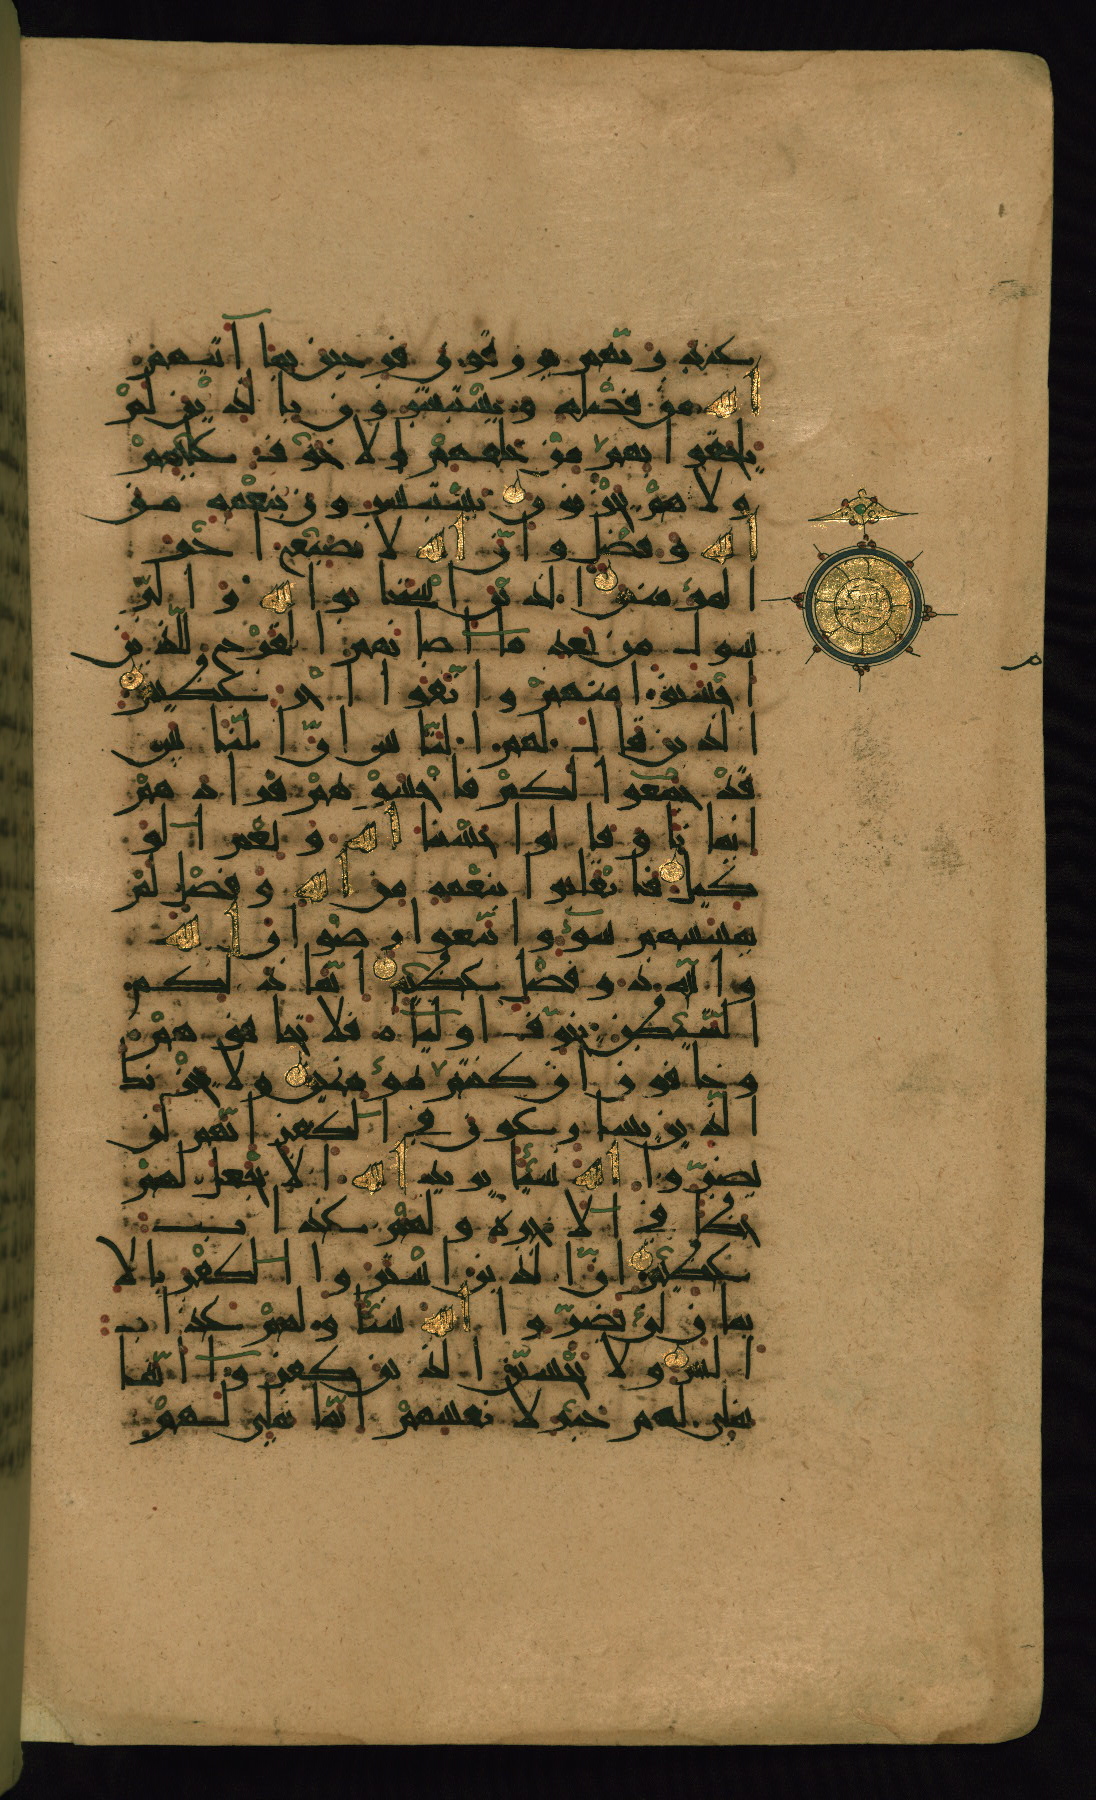 عند ربهم يرزقون فرحين بما آتيهم
الله من فضله ويستبشرون بالذين لم
يلحقوا بهم من خلفهم الا خوف عليهم
ولا هم يحزنون يستبشرون بنعمة من
الله وفضل وان الله لا يضيع اجر
المؤمنين الذين استجابوا لله والر
سول من بعد ما اصابهم القرح للذين
احسنوا منهم واتقوا اجر عظيم
الذين قال لهم الناس ان الناس
قد جمعوا لكم فاخشوهم فزادهم
ايمانا وقالوا حسبنا الله ونعم الو
كيل فانقلبوا بنعمة من الله وفضل لم
يمسسهم سوء واتبعوا رضوان الله
والله ذو فضل عظيم انما ذلكم
الشيطن يخوف اولياءه فلا تخافوهم
وخافون ان كنتم مؤمنين ولا يحزنك
الذين يسارعون في الكفر انهم لن
يضروا الله شيئا يريد الله الا يجعل لهم
حظا في الاخرة ولهم عذاب
عظيم ان الذين اشتروا الكفر بالا
يمان لن يضروا الله شيئا ولهم عذاب
اليم ولا يحسبن الذين كفروا انما
نملي لهم خير لانفسهم انما نملي لهم